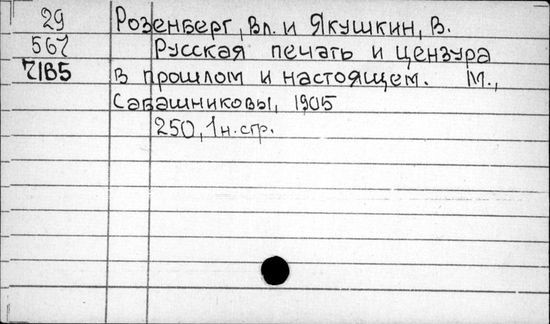 29 Розенберг, Вл. и Якушкин, В.
567 Русская печать и цензура
71B5 в прошлом и настоящем. М.,
Сабашниковы, 1905
250, 1 н. стр.